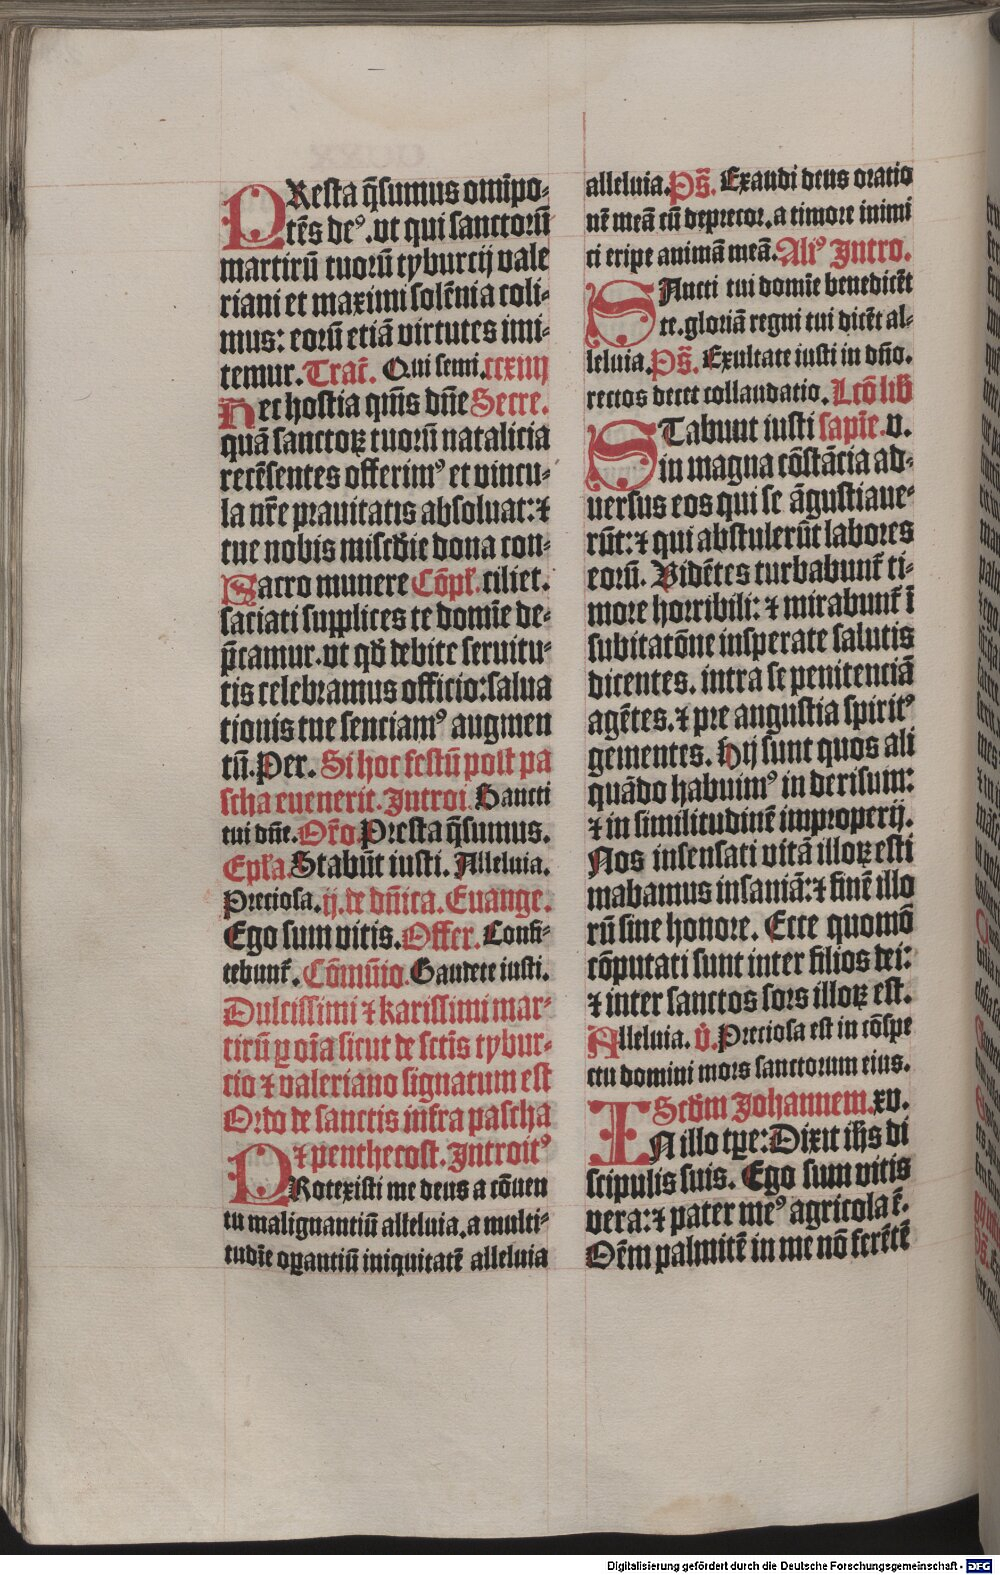 PResta q̄sumus om̄ipo-
tēs deꝰ.vt qui sanctorū
martirū tuorū tyburcij vale
riani et maximi solēnia coli-
mus: eorū etiā virtutes imi-
temur. Trac̄. Qui semi. ccxiiij
Hec hostia qm̄s dn̄e Secre.
quā sanctoꝝ tuorū natalicia
recēsentes offerimꝰ et vincu-
la nr̄e prauitatis absoluat: ⁊
tue nobis misc̄die dona con-
Sacro munere Cōpl̄. ciliet.
saciati supplices te domīe de-
p̄camur.vt qd̄ debite seruitu-
tis celebramus officio:salua
tionis tue senciamꝰ augmen
tū. Per. Si hoc festū post pa
scha euenerit. Introi. Sancti
tui dn̄e. Or̄o. Presta q̄sumus.
Epl̄a. Stabūt iusti. Alleluia.
Preciosa. ij. de dn̄ica. Euange.
Ego sum vitis. Offer. Confi-
tebunt̄. Cōmūio. Gaudete iusti.
Dulcissimi ⁊ karissimi mar-
tirū ꝑ oīa sicut de sctīs tybur-
cio ⁊ valeriano signatum est
Ordo de sanctis infra pascha
⁊ penthecost. Introitꝰ
PRotexisti me deus a cōuen
tu malignantiū alleluia. a multi-
tudīe oꝑantiū iniquitatē alleluia
alleluia. Ps̄. Exaudi deus oratio
nē meā cū deprecor. a timore inimi
ci eripe animā meā. Aliꝰ Intro.
SAncti tui domīe benedicēt
te. gloriā regni tui dicēt al-
leluia. Ps̄. Exultate iusti in dn̄o.
rectos decet collaudatio. Lcō lib̄
STabunt iusti sapīe. v.
in magna cōstācia ad-
uersus eos qui se āgustiaue-
rūt: ⁊ qui abstulerūt labores
eorū. Uidētes turbabunt̄ ti-
more horribili: ⁊ mirabunt̄ ī
subitatōne insperate salutis
dicentes. intra se penitenciā
agētes. ⁊ pre angustia spiritꝰ
gementes. Hij sunt quos ali
quādo habuimꝰ in derisum:
⁊ in similitudinē improperij.
Nos insensati vitā illoꝝ esti
mabamus insaniā: ⁊ finē illo
rū sine honore. Ecce quomō
cōputati sunt inter filios dei:
⁊ inter sanctos sors illoꝝ est.
Alleluia. v̄. Preciosa est in cōspe
ctu domini mors sanctorum eius.
Scd̄m Johannem. xv.
IN illo tꝑe: Dixit ih̄s di
scipulis suis. Ego sum vitis
vera: ⁊ pater meꝰ agricola ē.
Oēm palmitē in me nō ferētē
Digitalisierung gefördert durch die Deutsche Forschungsgemeinschaft - DFG